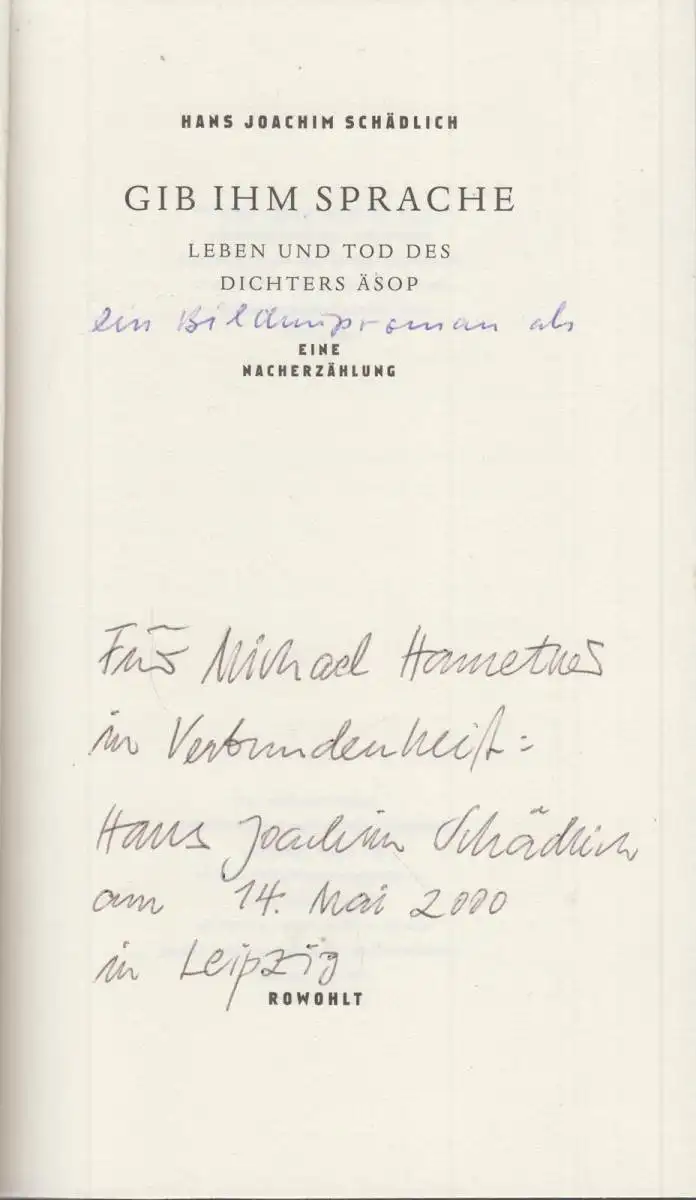 HANS JOACHIM SCHÄDLICH
GIB IHM SPRACHE
LEBEN UND TOD DES
DICHTERS ÄSOP
ein Bildungsroman als
EINE
NACHERZÄHLUNG
Für Michael Hametner
in Verbundenheit:
Hans Joachim Schädlich
am 14. Mai 2000
in Leipzig
ROWOHLT